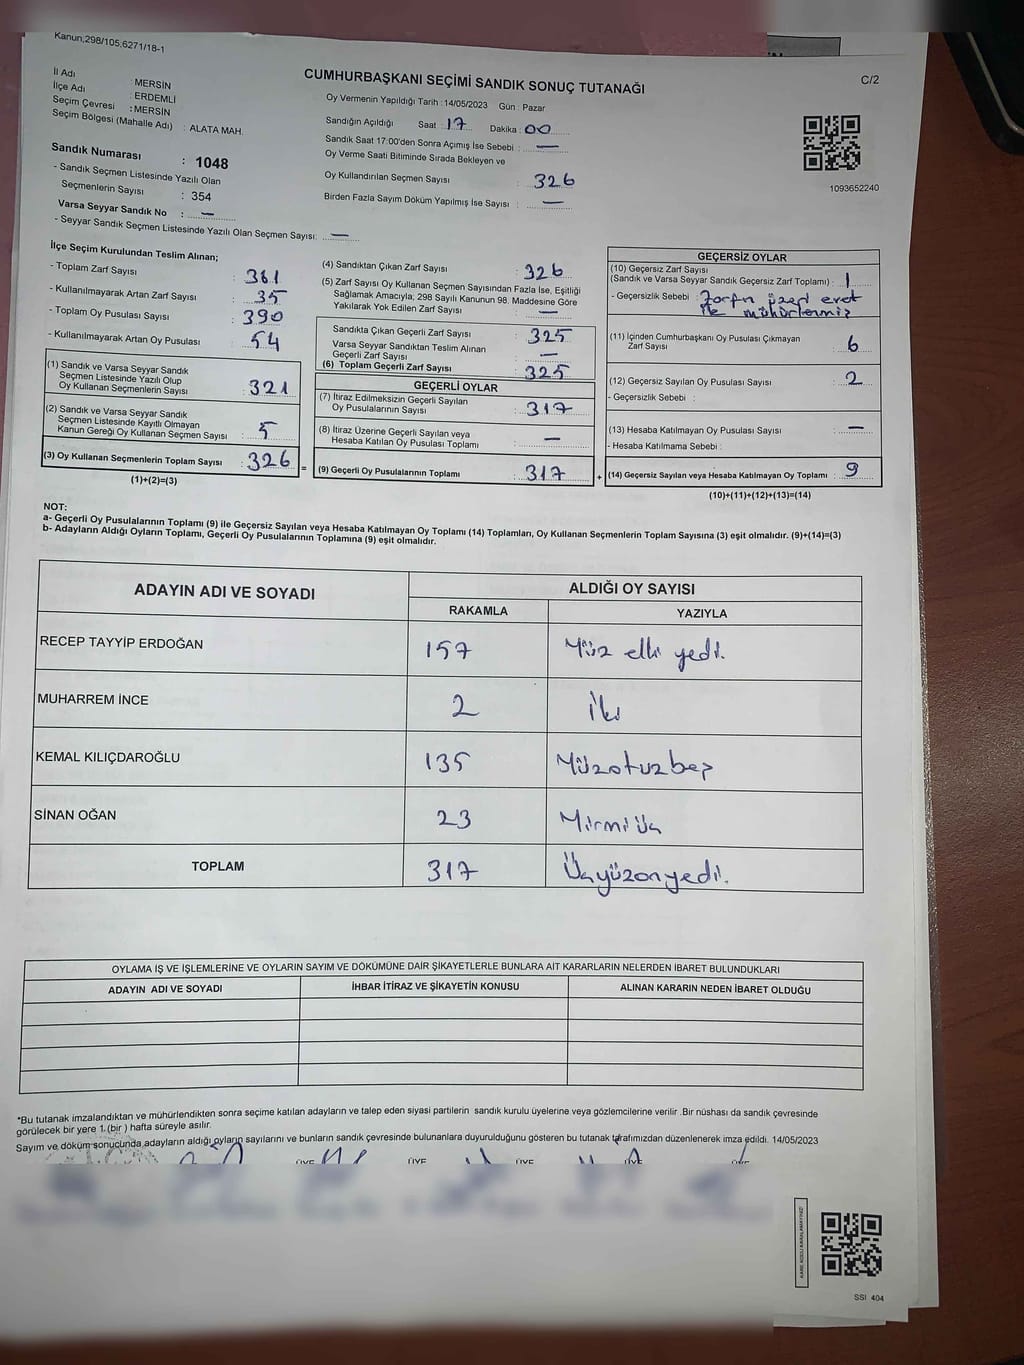 Kanun,298/105,6271/18-1
C/2
CUMHURBAŞKANI SEÇİMİ SANDIK SONUÇ TUTANAĞI
İl Adı : MERSİN
İlçe Adı : ERDEMLİ
Seçim Çevresi : MERSİN
Seçim Bölgesi (Mahalle Adı) : ALATA MAH.
Sandık Numarası : 1048
- Sandık Seçmen Listesinde Yazılı Olan
Seçmenlerin Sayısı : 354
Varsa Seyyar Sandık No : —
- Seyyar Sandık Seçmen Listesinde Yazılı Olan Seçmen Sayısı: —
Oy Vermenin Yapıldığı Tarih : 14/05/2023 Gün : Pazar
Sandığın Açıldığı Saat : 17 Dakika : 00
Sandık Saat 17:00'den Sonra Açımış İse Sebebi : —
Oy Verme Saati Bitiminde Sırada Bekleyen ve
Oy Kullandırılan Seçmen Sayısı : 326
Birden Fazla Sayım Döküm Yapılmış İse Sayısı : —
1093652240
İlçe Seçim Kurulundan Teslim Alınan;
- Toplam Zarf Sayısı : 361
- Kullanılmayarak Artan Zarf Sayısı : 35
- Toplam Oy Pusulası Sayısı : 390
- Kullanılmayarak Artan Oy Pusulası : 54
(1) Sandık ve Varsa Seyyar Sandık
Seçmen Listesinde Yazılı Olup
Oy Kullanan Seçmenlerin Sayısı : 321
(2) Sandık ve Varsa Seyyar Sandık
Seçmen Listesinde Kayıtlı Olmayan
Kanun Gereği Oy Kullanan Seçmen Sayısı : 5
(3) Oy Kullanan Seçmenlerin Toplam Sayısı : 326 =
(1)+(2)=(3)
(4) Sandıktan Çıkan Zarf Sayısı : 326
(5) Zarf Sayısı Oy Kullanan Seçmen Sayısından Fazla İse, Eşitliği
Sağlamak Amacıyla; 298 Sayılı Kanunun 98. Maddesine Göre
Yakılarak Yok Edilen Zarf Sayısı : —
Sandıkta Çıkan Geçerli Zarf Sayısı : 325
Varsa Seyyar Sandıktan Teslim Alınan
Geçerli Zarf Sayısı : —
(6) Toplam Geçerli Zarf Sayısı : 325
GEÇERLİ OYLAR
(7) İtiraz Edilmeksizin Geçerli Sayılan
Oy Pusulalarının Sayısı : 317
(8) İtiraz Üzerine Geçerli Sayılan veya
Hesaba Katılan Oy Pusulası Toplamı : —
(9) Geçerli Oy Pusulalarının Toplamı : 317 +
GEÇERSİZ OYLAR
(10) Geçersiz Zarf Sayısı
(Sandık ve Varsa Seyyar Sandık Geçersiz Zarf Toplamı) : 1
- Geçersizlik Sebebi : Zarfın üzeri evet
ile mühürlenmiş
(11) İçinden Cumhurbaşkanı Oy Pusulası Çıkmayan
Zarf Sayısı : 6
(12) Geçersiz Sayılan Oy Pusulası Sayısı : 2
- Geçersizlik Sebebi :
(13) Hesaba Katılmayan Oy Pusulası Sayısı : —
- Hesaba Katılmama Sebebi :
(14) Geçersiz Sayılan veya Hesaba Katılmayan Oy Toplamı : 9
(10)+(11)+(12)+(13)=(14)
NOT:
a- Geçerli Oy Pusulalarının Toplamı (9) ile Geçersiz Sayılan veya Hesaba Katılmayan Oy Toplamı (14) Toplamları, Oy Kullanan Seçmenlerin Toplam Sayısına (3) eşit olmalıdır. (9)+(14)=(3)
b- Adayların Aldığı Oyların Toplamı, Geçerli Oy Pusulalarının Toplamına (9) eşit olmalıdır.
ADAYIN ADI VE SOYADI ALDIĞI OY SAYISI
RAKAMLA YAZIYLA
RECEP TAYYİP ERDOĞAN 157 Yüz elli yedi.
MUHARREM İNCE 2 İki
KEMAL KILIÇDAROĞLU 135 Yüzotuzbeş
SİNAN OĞAN 23 Yirmiüç
TOPLAM 317 Üçyüzonyedi.
OYLAMA İŞ VE İŞLEMLERİNE VE OYLARIN SAYIM VE DÖKÜMÜNE DAİR ŞİKAYETLERLE BUNLARA AİT KARARLARIN NELERDEN İBARET BULUNDUKLARI
ADAYIN ADI VE SOYADI İHBAR İTİRAZ VE ŞİKAYETİN KONUSU ALINAN KARARIN NEDEN İBARET OLDUĞU
*Bu tutanak imzalandıktan ve mühürlendikten sonra seçime katılan adayların ve talep eden siyasi partilerin sandık kurulu üyelerine veya gözlemcilerine verilir .Bir nüshası da sandık çevresinde
görülecek bir yere 1.(bir ) hafta süreyle asılır.
Sayım ve döküm sonucunda adayların aldığı oyların sayılarını ve bunların sandık çevresinde bulunanlara duyurulduğunu gösteren bu tutanak tarafımızdan düzenlenerek imza edildi. 14/05/2023
ÜYE ÜYE ÜYE ÜYE ÜYE
SSI 404